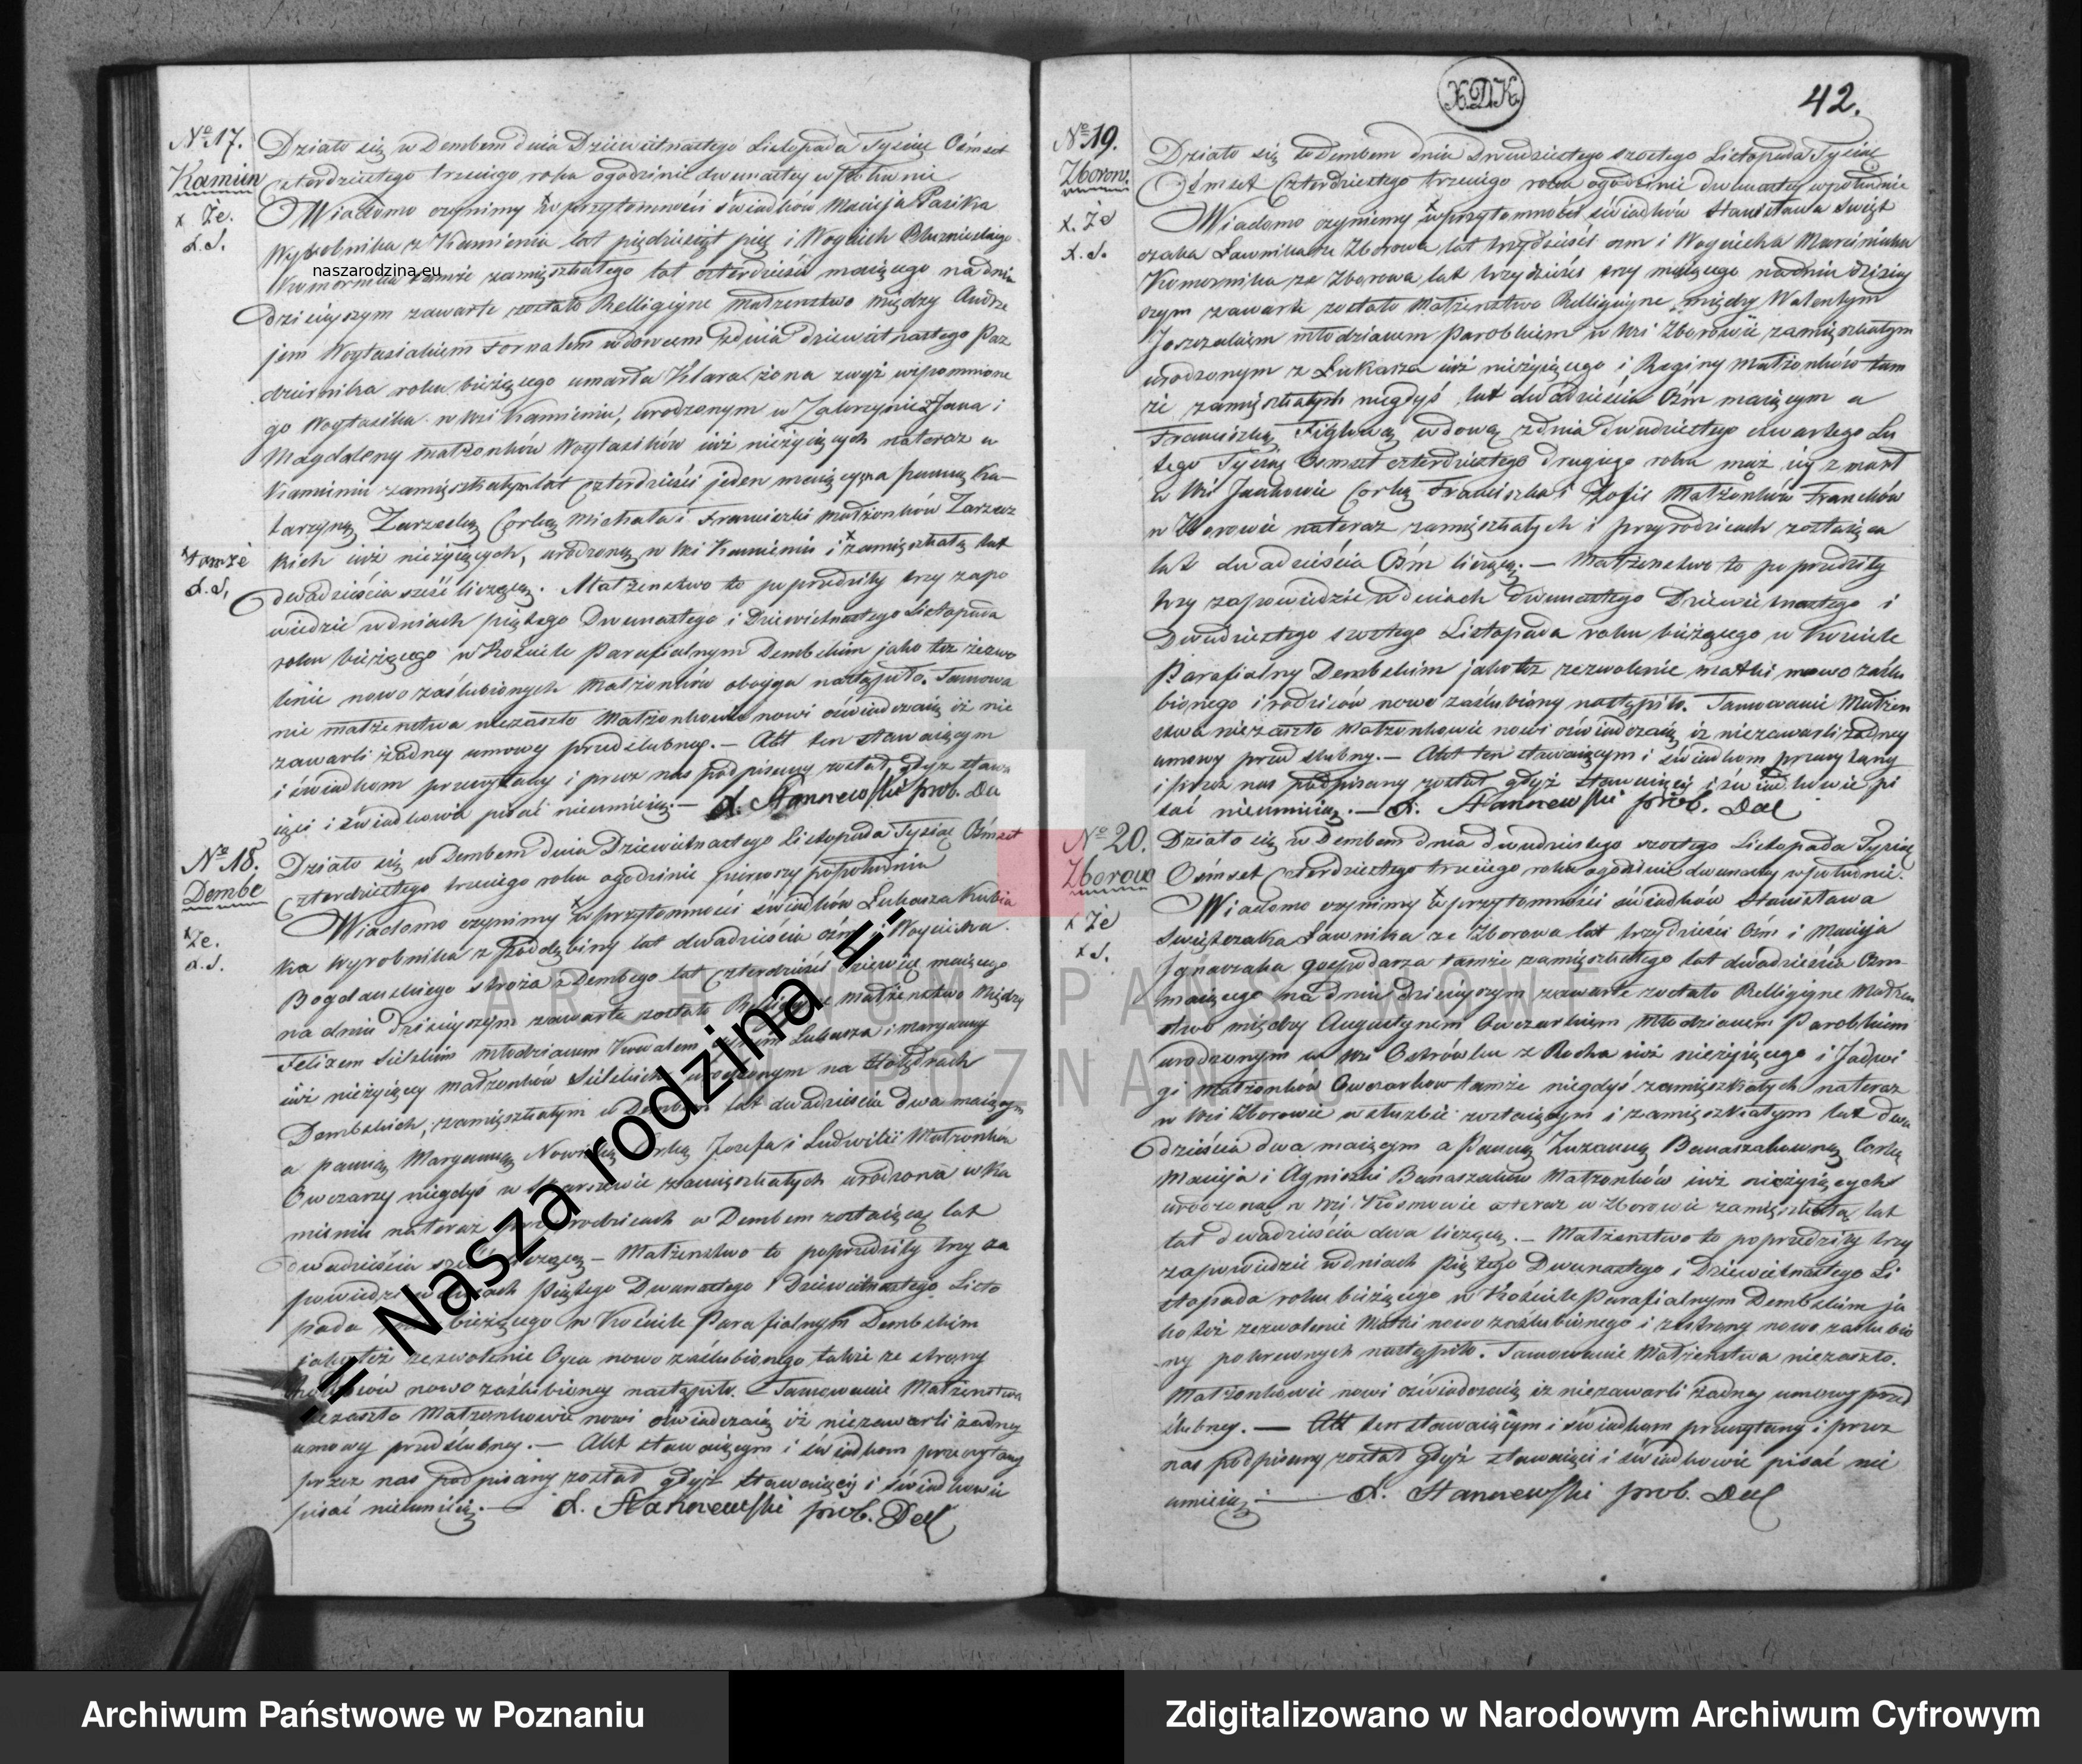 No 17.
Kamień
x Że.
x. S.
Działo się w Dembem dnia Dziewiętnastego Listopada Tysiąc Ośmset
Czterdziestego trzeciego roku o godzinie dwunastey w Południe
Wiadomo czynimy x w przytomności świadków Macieja Pasika
Wyrobnika z Kamienia lat pięćdziesiąt pięć i Woyciech
naszarodzina.eu
Komornika tamże zamięszkałego lat czterdzieści maiącego na dniu
dzisieyszym zawarte zostało Religiyne małżeństwo między Andrze
jem Woytasiakiem Fornalem wdowcem z dnia dziewiętnastego Paz
dziernika roku bieżącego umarła Klara żona zwyż wspomnione
go Woytasika w Wsi Kamieniu, urodzonym w Jana i
Magdaleny małżonków Woytasików iuż nieżyiących nateraz w
Kamieniu zamięszkałym lat czterdzieści jeden maiącym a panną Ka-
tarzyną Zarzecką Corką Michała i Franciszki małżonków Zarzec
kich iuż nieżyiących, urodzoną w Wsi Kamieniu i x zamięszkałą lat
x tamże
x. S.
dwadzieścia sześć liczącą. Małżeństwo to poprzedziły trzy zapo
wiedzie w dniach piątego Dwunastego i Dziewiętnastego Listopada
roku bieżącego w Kościele Parafialnym Dembskim jako też zezwo
lenie nowo zaślubionych Małżonków oboyga nastąpiło. Tamowa
nie małżeństwa niezaszło Małżonkowie nowi oświadczaią iż nie
zawarli żadney umowy przedślubney. — Akt ten stawaiącym
i świadkom przeczytany i przez nas podpisany został, gdyż stawa
iący i świadkowie pisać nieumieią. — X. Stannewski prob. De
No 18.
Dembe
x Ze.
x. S.
Działo się w Dembem dnia Dziewiętnastego Listopada Tysiąc Ośmset
Czterdziestego trzeciego roku o godzinie pierwszy popołudniu
Wiadomo czynimy x w przytomności świadków Łukasza Kubia
ka Wyrobnika z Poddębiny lat dwadzieścia ośm i Woyciecha
Bogdanskiego stróża z Dembego lat czterdzieści dziewięć maiącego
na dniu dzisieyszym zawarte zostało Religiyne małżeństwo między
Felixem Sielskim młodzianem Łukasza i Maryanny
iuż nieżyiący małżonków Sielskich urodzonym na Holędrach
Dembskich, zamięszkałym w Dembem lat dwadzieścia dwa maiącym
a panną Maryanną Corką Jozefa i Ludwiki Małżonków
Owczarzy niegdyś w Skarszewie zamięszkałych urodzona w Ka
mieniu nateraz przy rodzicach w Dembem zostaiącą lat
dwadzieścia liczącą — Małżeństwo to poprzedziły trzy za
powiedzie w dniach Piątego Dwunastego i Dziewiętnastego Listo
pada roku bieżącego w Kościele Parafialnym Dembskim
jako też zezwolenie Oyca nowo zaślubionego, także ze strony
nowo zaślubioney nastąpiło. Tamowanie Małżeństwa
niezaszło Małżonkowie nowi oświadczaią iż niezawarli żadney
umowy przedślubney. — Akt stawaiącym i świadkom przeczytany
przez nas podpisany został gdyż stawaiący i świadkowie
pisać nieumieią. — X. Stannewski prob. Del
-= Nasza rodzina =-
X.D.K.
42.
No 19.
Zborow.
x. Że
x. S.
Działo się w Dembem dnia Dwudziestego szostego Listopada Tysiąc
Ośmset Czterdziestego trzeciego roku o godzinie dwunastey w południe
Wiadomo czynimy x w przytomności świadków Stanisława Swięt
czaka Ławnika ze Zborowa lat trzydzieści ośm i Woyciecha Marciniaka
Komornika ze Zborowa lat trzydzieści trzy maiącego na dniu dzisiey
szym zawarte zostało Małżeństwo Religiyne między Walentym
młodzianem Parobkiem w Wsi Zborowie zamięszkałym
urodzonym z Łukasza iuż nieżyiącego i Reginy Małżonków tam
że zamięszkałych niegdyś, lat dwadzieścia Ośm maiącym a
Franciszką wdową z dnia Dwudziestego czwartego Lu
tego Tysiąc Ośmset czterdziestego drugiego roku mąż iey zmarł
w Wsi Jankowie Corką Franciszka i Zofii Małżonków Franków
w Zborowie nateraz zamięszkałych i przy rodzicach zostaiąca
lat dwadzieścia Ośm liczącą. — Małżeństwo to poprzedziły
trzy zapowiedzie w dniach Dwunastego Dziewiętnastego i
Dwudziestego szostego Listopada roku bieżącego w Kościele
Parafialny Dembskim jako też zezwolenie matki nowo zaślu
bionego i rodziców nowo zaślubiony nastąpiło. Tamowanie Małżeń
stwa niezaszło Małżonkowie nowi oświadczaią iż niezawarli żadney
umowy przedślubny. — Akt ten stawaiącym i świadkom przeczytany
i przez nas podpisany został gdyż stawaiący i świadkowie pi
sać nieumieią. — X. Stannewski prob. Del
No 20.
Zborow
x Że
x S.
Działo się w Dembem dnia dwudziestego szostego Listopada Tysiąc
Ośmset Czterdziestego trzeciego roku o godzinie dwunastey w południe.
Wiadomo czynimy x w przytomności świadków Stanisława
Swiętczaka Ławnika ze Zborowa lat trzydzieści Ośm i Macieja
Ignaczaka gospodarza tamże zamięszkałego lat dwadzieścia Ośm
maiącego na dniu dzisieyszym zawarte zostało Religiyne Małżeń
stwo między Augustynem Owczarkiem Młodzianem Parobkiem
urodzonym w Wsi Ostrówku z Rocha iuż nieżyiącego i Jadwi
gi Małżonków Owczarkow tamże niegdyś zamięszkałych nateraz
w Wsi Zborowie w służbie zostaiącym i zamięszkałym lat dwa
dzieścia dwa maiącym a Panną Zuzanną Banaszakowną Corką
Macieja i Agnieszki Banaszaków Małżonków iuż nieżyiących
urodzoną w Wsi Kosmowie a teraz w Zborowie zamięszkałą lat
lat dwadzieścia dwa liczącą. — Małżeństwo to poprzedziły trzy
zapowiedzie w dniach Piątego Dwunastego i Dziewiętnastego Li
stopada roku bieżącego w Kościele Parafialnym Dembskim ja
ko też zezwolenie Matki nowo zaślubionego i ze strony nowo zaślubio
ny pokrewnych nastąpiło. Tamowanie Małżeństwa niezaszło.
Małżonkowie nowi oświadczaią iż niezawarli żadney umowy przed
ślubney. — Akt ten stawaiącym i świadkom przeczytany i przez
nas podpisany został gdyż stawaiący i świadkowie pisać nie
umieią. — X. Stannewski prob. Del
ARCHIWUM PAŃSTWOWE
W POZNANIU
Archiwum Państwowe w Poznaniu
Zdigitalizowano w Narodowym Archiwum Cyfrowym